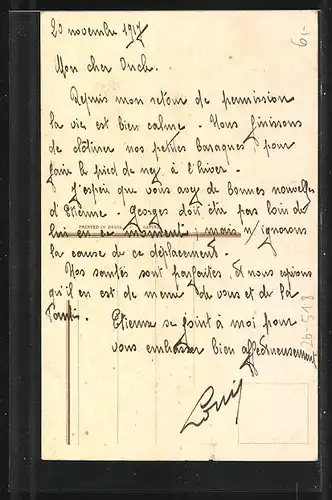 20 novembre 1917
61-
Mon cher Oncle.
Depuis mon retour de permission
la vie est bien calme. Nous finissons
de clôturer nos petites baraques pour
faire le pied de nez à l'hiver.
J'espère que vous avez de bonnes nouvelles
d'Etienne. Georges doit être pas loin de
PRINTED IN PARIS
lui en ce moment, mais n/ ignorons
la cause de ce déplacement.
Nos santés sont parfaites. Et nous espérons
qu'il en est de même de vous et de la
Tante.
Etienne se joint à moi pour
vous embrasser bien affectueusement
Louis